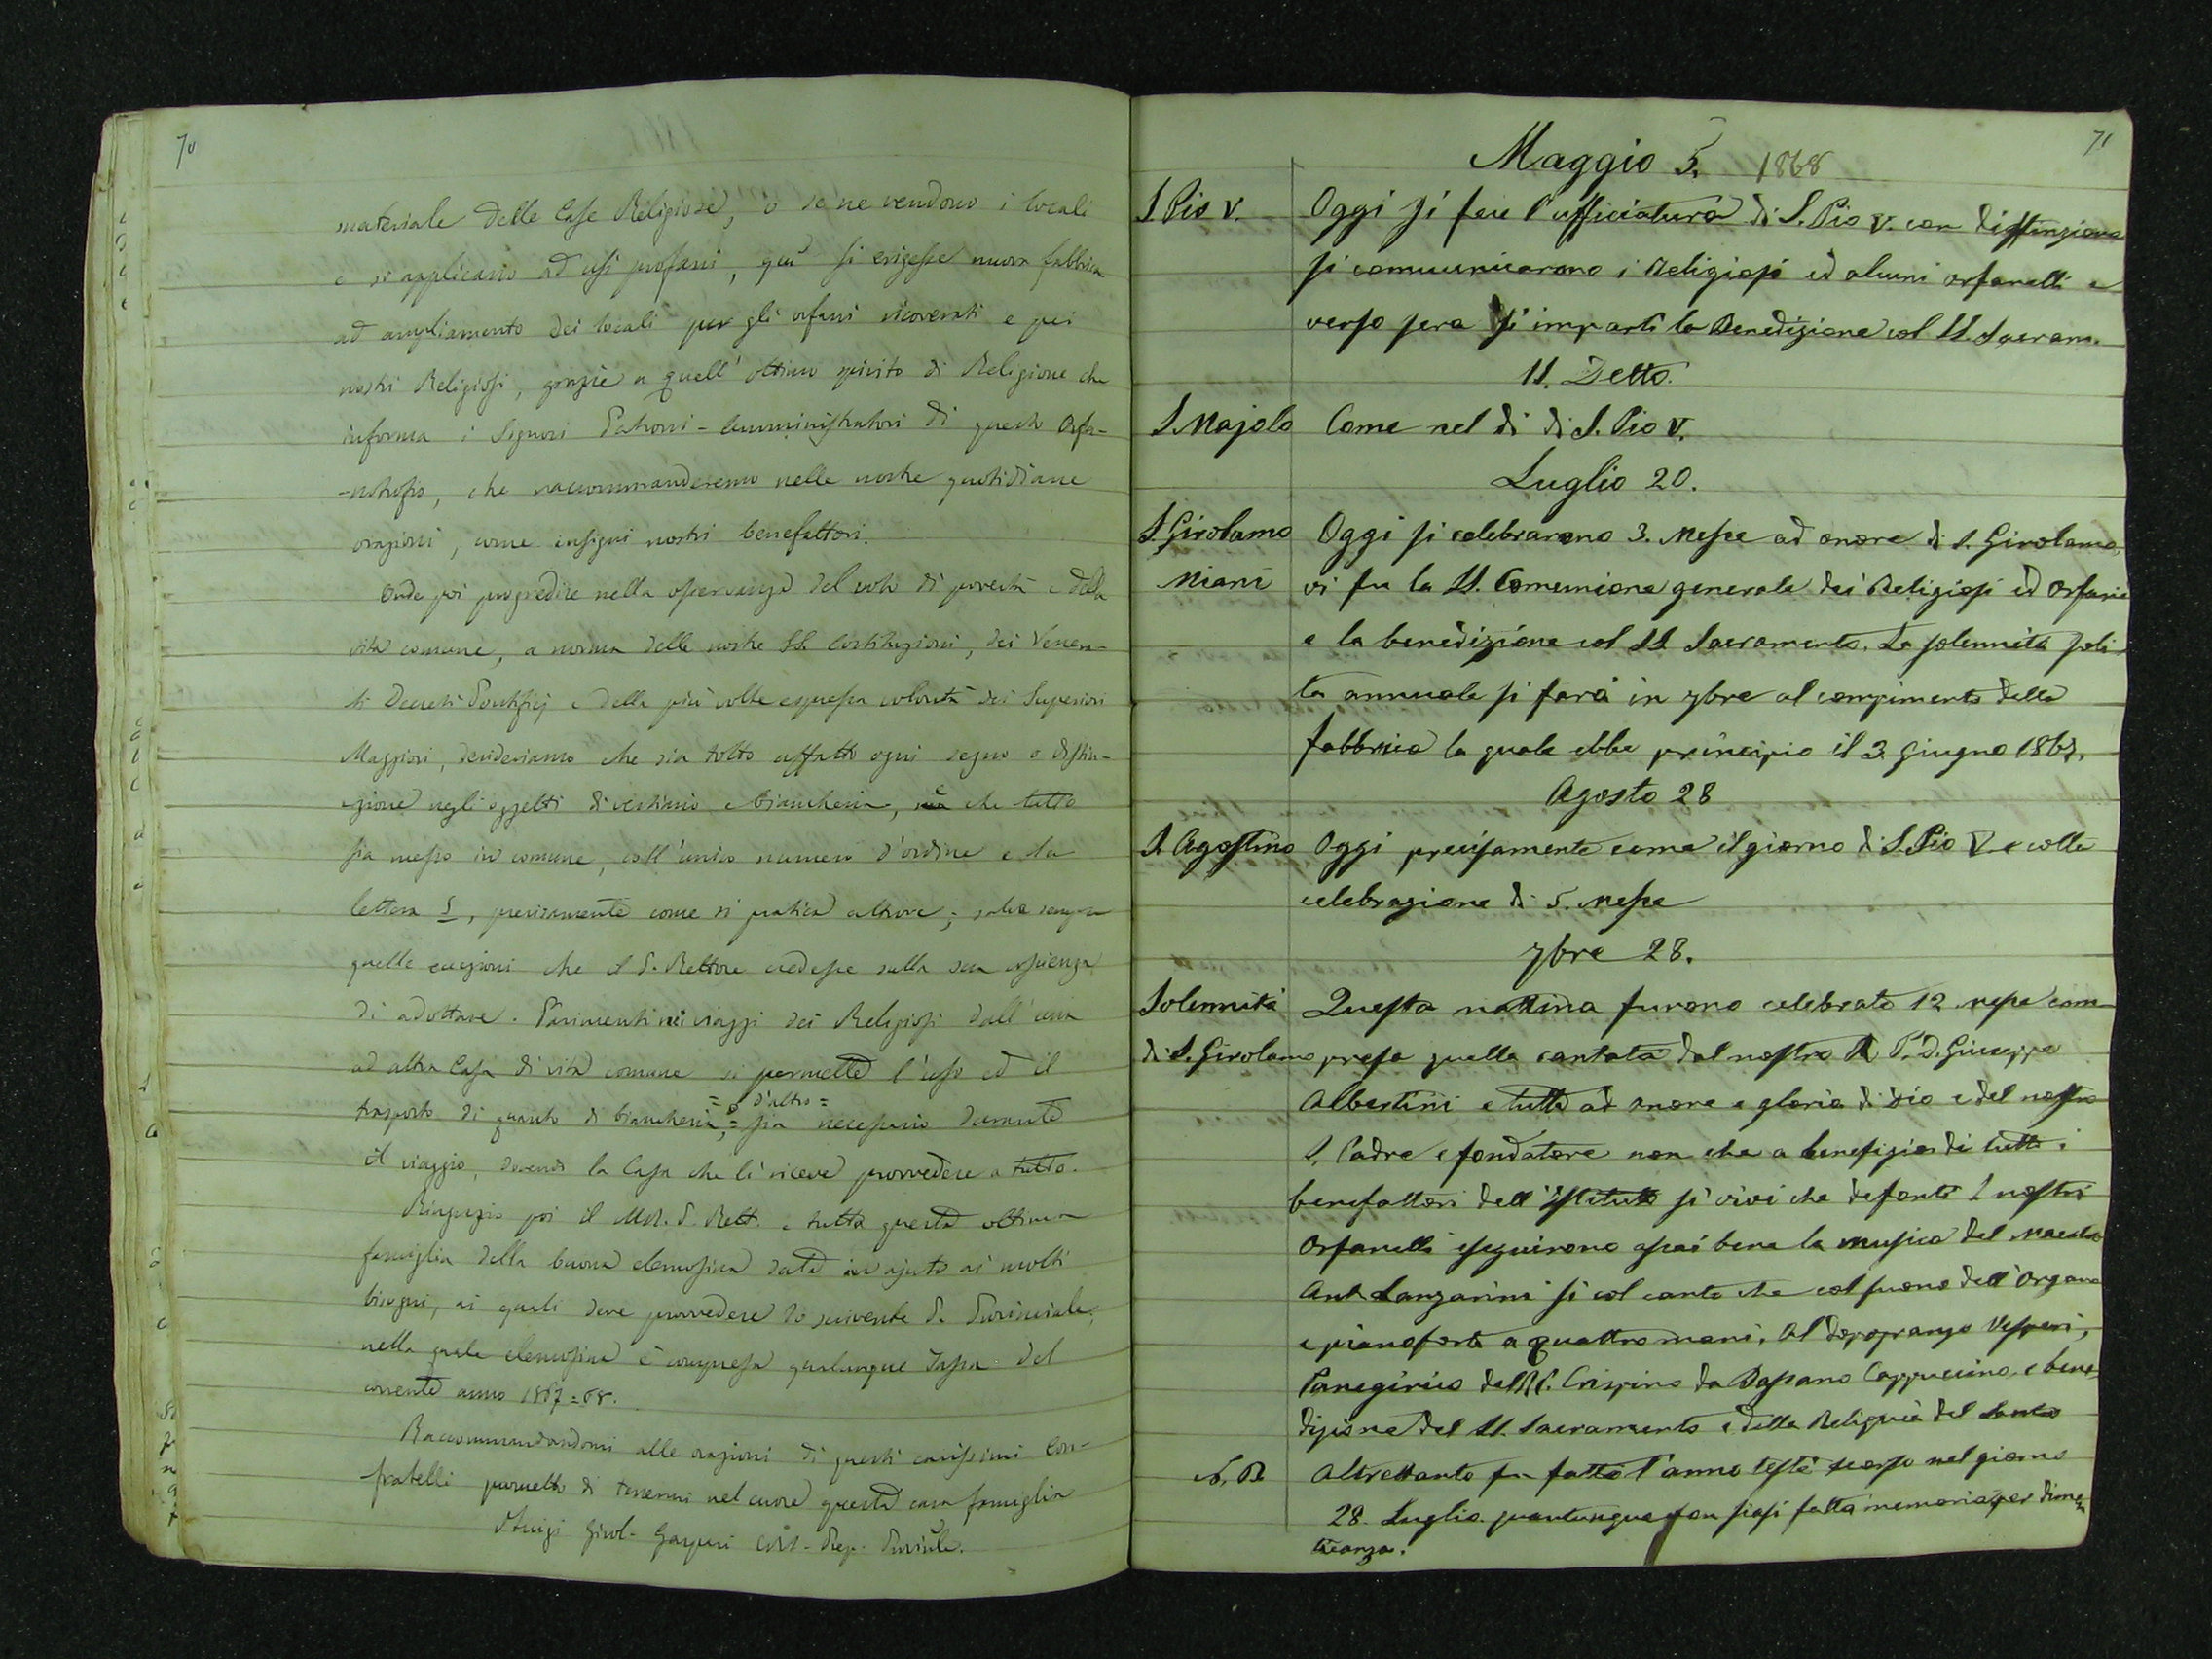 70
materiale delle Case Religiose, o se ne vendono i locali
e si applicano ad usi profani, quì si erigesse nuova fabbrica
ad ampliamento dei locali per gli orfani ricoverati e pei
nostri Religiosi, grazie a quell' ottimo spirito di Religione che
informa i Signori Patroni - Amministratori di questo Orfa-
-notrofio, che raccommanderemo nelle nostre quotidiane
orazioni, come insigni nostri benefattori.
Onde poi progredire nella osservanza del voto di povertà e della
vita comune, a norma delle nostre SS. Costituzioni, dei Venera-
ti Decreti Pontificj e della più volte espressa volontà dei Superiori
Maggiori, desideriamo che sia tolto affatto ogni segno o distin-
zione negli oggetti di vestiario e biancheria, e che tutto
sia messo in comune, coll' unico numero d'ordine e la
lettera S, precisamente come si pratica altrove; salve sempre
quelle eccezioni che il P. Rettore credesse nella sua
di adottare. Parimenti nei viaggi dei Religiosi dall' una
ad altra Casa di vita comune si permette l'uso ed il
trasporto di quanto di biancheria, = o d'altro = sia necessario durante
il viaggio, dovendo la Casa che li riceve provvedere a tutto.
Ringrazio poi il M.R. P. Rett. e tutta questa ottima
famiglia della buona elemosina data in ajuto ai molti
bisogni, ai quali deve provvedere lo scrivente P. Provinciale;
nella quale elemosina è compresa qualunque Tassa del
corrente anno 1867=68.
Raccommandandomi alle orazioni di questi carissimi Con-
fratelli prometto di tenermi nel cuore questa cara famiglia
Luigi Girol. Gaspari CRS. Prep. Provinle.
71
Maggio 5. 1868
S. Pio V. Oggi si fece l'ufficiatura di S. Pio V. con distinzione
si comunicarono i Religiosi ed alcuni orfanelli e
verso sera si impartì la Benedizione col SS. Sacram.
11. Detto.
S. Majolo Come nel dì di S. Pio V.
Luglio 20.
S. Girolamo Oggi si celebrarono 3. Messe ad onore di S. Girolamo,
Miani vi fu la SS. Comunione generale dei Religiosi ed Orfani
e la benedizione col SS Sacramento. La solennità soli-
ta annuale si farà in 7bre al compimento della
fabbrica la quale ebbe principio il 3. Giugno
Agosto 28
S. Agostino Oggi precisamente come il giorno di S. Pio V. e colla
celebrazione di 5. Messe
7bre 28.
Solennità Questa mattina furono celebrate 12 messe com-
di S. Girolamo presa quella cantata dal nostro P. D. Giuseppe
Albertini e tutte ad onore e gloria di Dio e del nostro
S. Padre e fondatore non che a benefizio di tutti i
benefattori dell' Istituto sì vivi che defonti I nostri
Orfanelli eseguirono assai bene la musica del Maestro
Ant. Lanzarini sì col canto che col suono dell' Organo
e pianoforte a quattro mani. Al dopopranzo Vesperi,
Panegirico del R.P. Crispino da Bassano Cappuccino, e bene-
dizione del SS. Sacramento e della Reliquia del Santo
N.B. Altrettanto fu fatto l'anno testè scorso nel giorno
28. Luglio quantunque non siasi fatta memoria per dimen
ticanza.